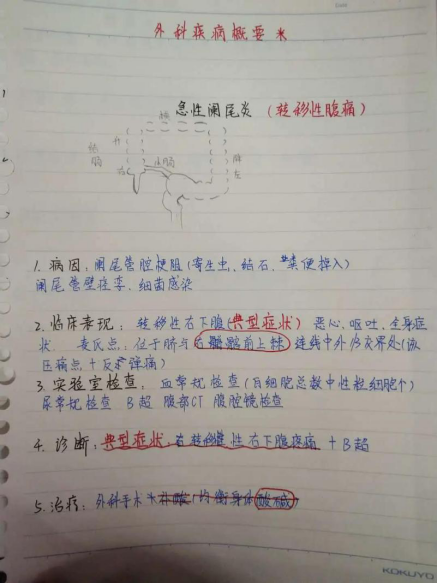 外科疾病概要*
急性阑尾炎 (转移性腹痛)
横
升
结
肠
回肠
降
1. 病因: 阑尾管腔梗阻(寄生虫、结石、粪便掉入)
阑尾管壁 细菌感染
2. 临床表现: 转移性右下腹(典型症状) 恶心、呕吐、全身症
状. 麦氏点: 位于脐与右髂前上棘连线中外1/3交界处(该
压痛点+反跳痛)
3. 实验室检查: 血常规检查(白细胞总数中性粒细胞个)
尿常规检查 B超 腹部CT 腹腔镜检查
4. 诊断: 典型症状, 性右下腹疼痛 + B超
5. 治疗: 外科手术+补酸(均衡身体酸碱)
KOKUYO